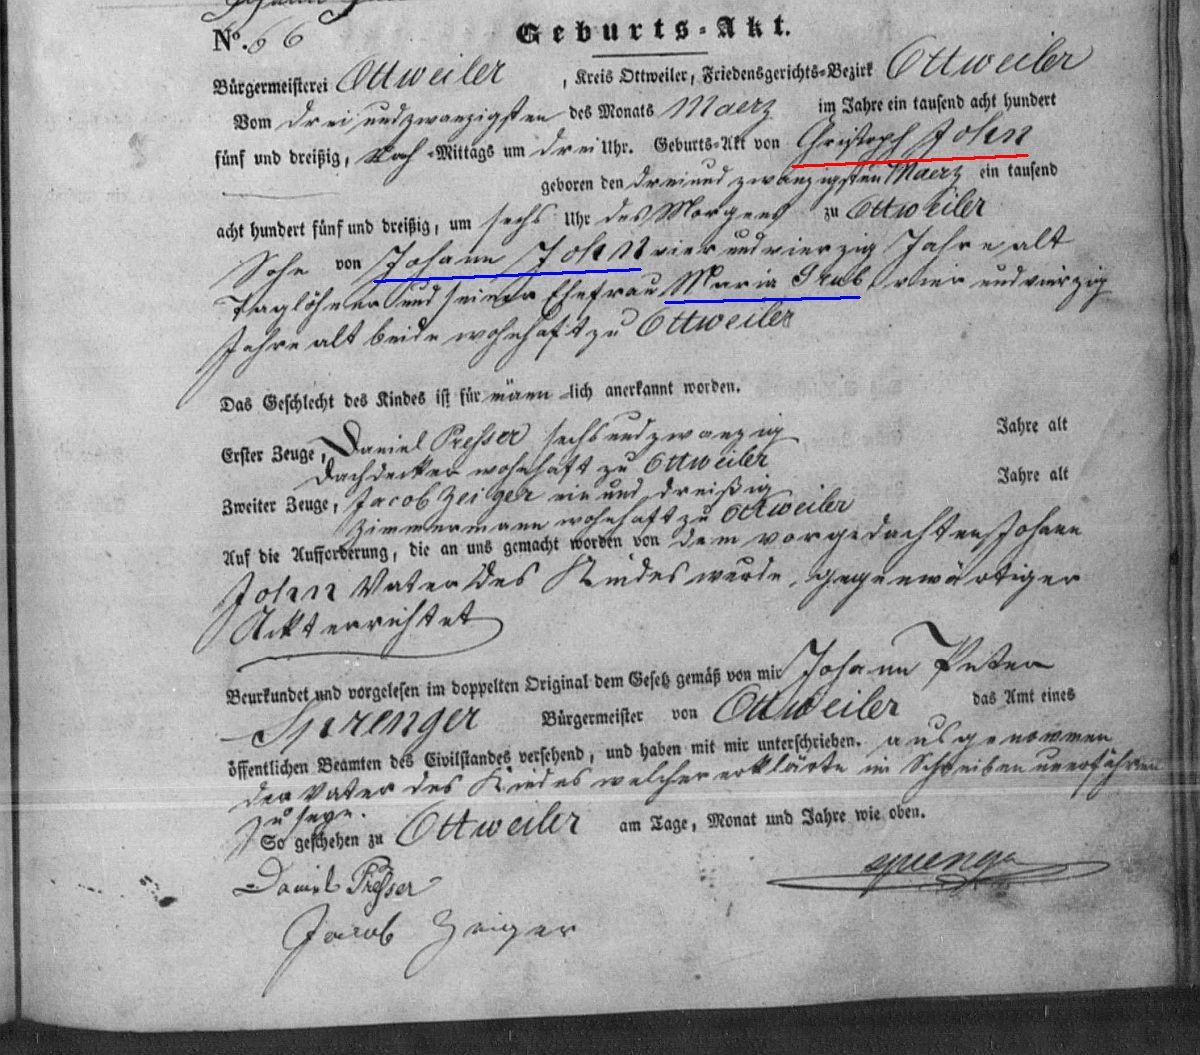 Nº. 66 Geburts-Akt.
Bürgermeisterei Ottweiler, Kreis Ottweiler, Friedensgerichts-Bezirk Ottweiler
Vom drei und zwanzigsten des Monats Maerz im Jahre ein tausend acht hundert
fünf und dreißig, Nach-Mittags um drei Uhr. Geburts-Akt von Christoph John
geboren den drei und zwanzigsten Maerz ein tausend
acht hundert fünf und dreißig, um sechs Uhr des Morgens zu Ottweiler
Sohn von Johann John vier und vierzig Jahre alt
Taglöhner und seiner Ehefrau Maria Grub vier und vierzig
Jahre alt beide wohnhaft zu Ottweiler
Das Geschlecht des Kindes ist für männ-lich anerkannt worden.
Erster Zeuge, Daniel Presser sechs und zwanzig Jahre alt
Dachdecker wohnhaft zu Ottweiler
Zweiter Zeuge, Jacob Zeiger ein und dreißig Jahre alt
Zimmermann wohnhaft zu Ottweiler
Auf die Aufforderung, die an uns gemacht worden von dem vorgedachten Johann
John Vater des Kindes wurde gegenwärtiger
Ackt errichtet
Beurkundet und vorgelesen im doppelten Original dem Gesetz gemäß von mir Johann Peter
Sprenger Bürgermeister von Ottweiler das Amt eines
öffentlichen Beamten des Civilstandes versehend, und haben mit mir unterschrieben. ausgenommen
der Vater des Kindes welcher erklärte im Schreiben unerfahren
zu seyn.
So geschehen zu Ottweiler am Tage, Monat und Jahre wie oben.
Daniel Presser
Jacob Zeiger